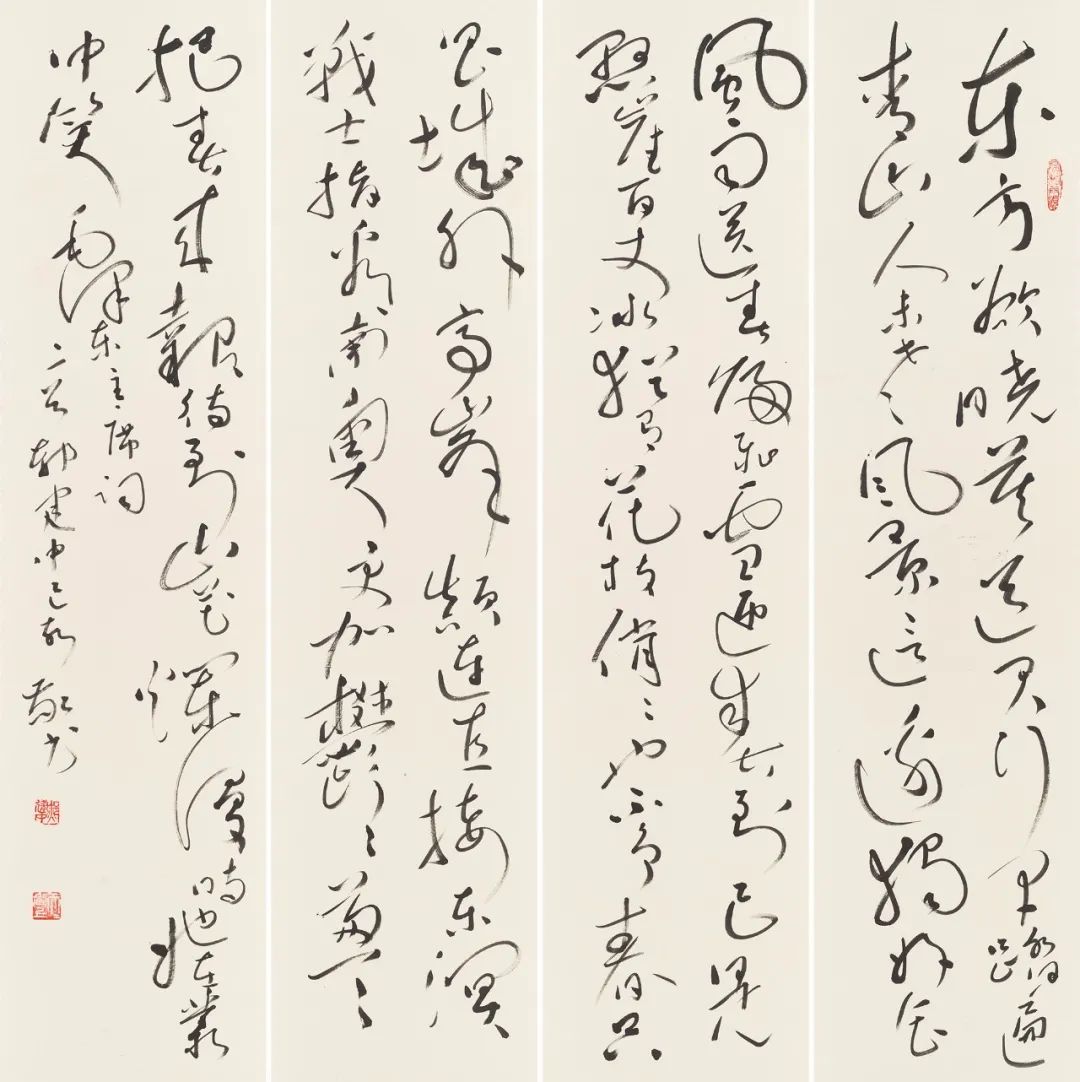 东方欲晓莫道君行早踏遍
青山人未老々风景这边独好会
風雨送春归飞雪迎春到已是
悬崖百丈冰犹有花枝俏々也不争春只
昌城外高峰颠连直接东溟
战士指看南粤更加鬱鬱々葱々
把春来报待到山花烂漫时她在丛
中笑
毛泽东主席词
二首 建中己亥 敬书